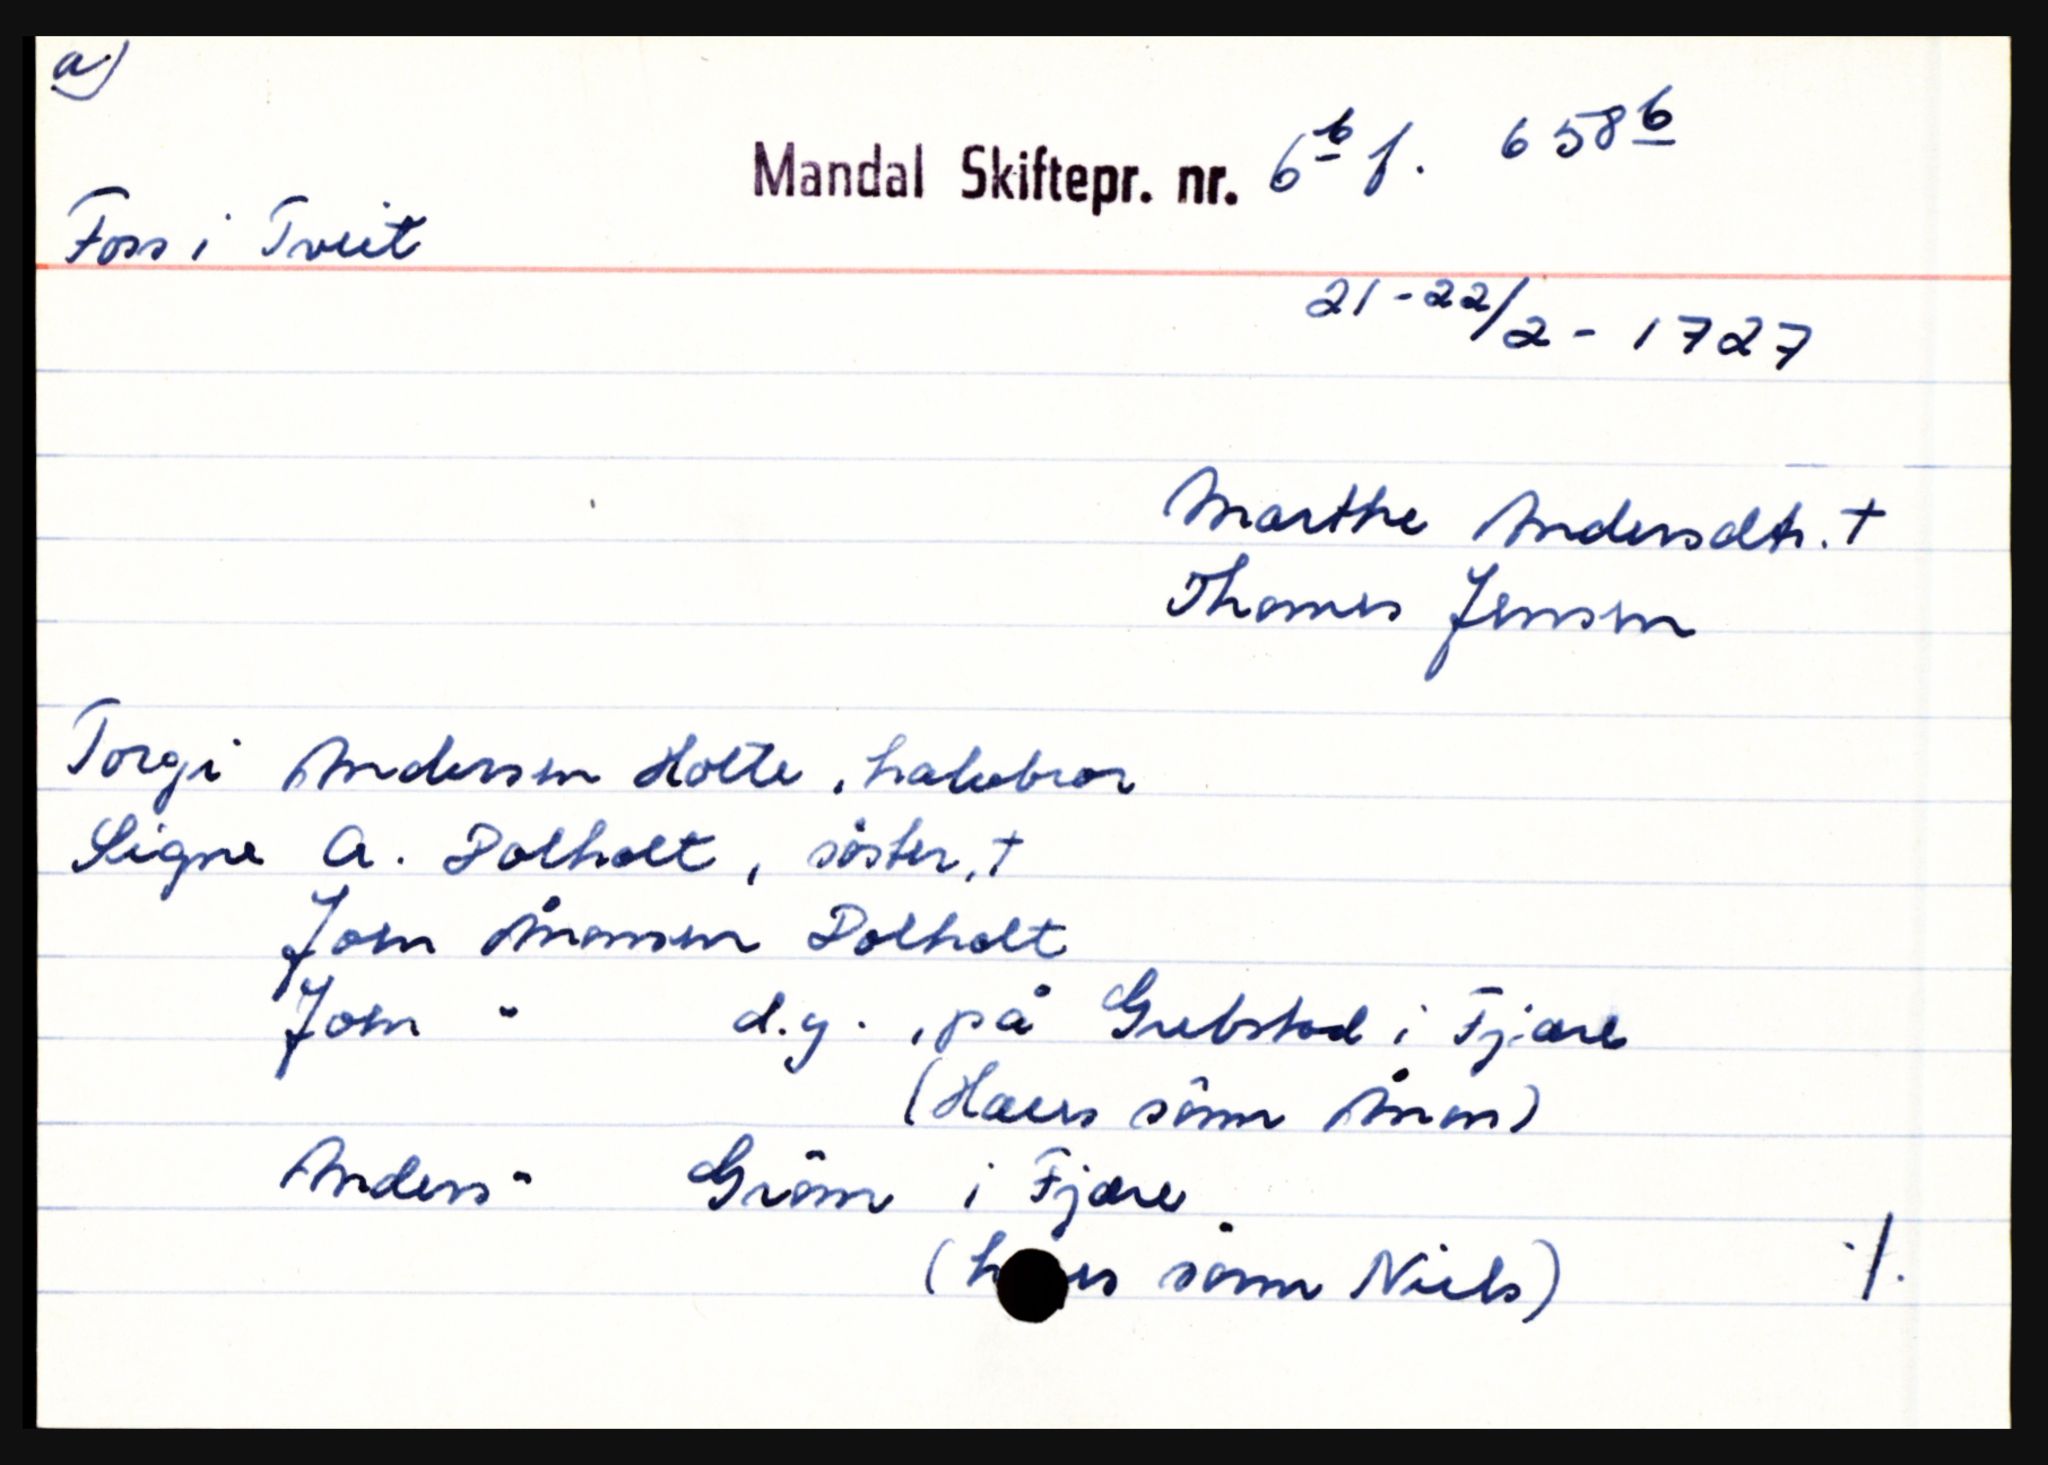 a)
Mandal Skiftepr. nr. 6b f. 658b
Foss i Tveit
21-22/2-1727
Marthe Andersdtr. †
Thomes Jensen
Torgi Andersen Holte, halvbror
Signe A. Dolholt, söster, †
Joen Ånonsen Dolholt
Joen " d.y., på Grebstad i Fjære
(Haes sönn Ånon)
Anders " Gröm i Fjære
(h es sönn Niels)
./.